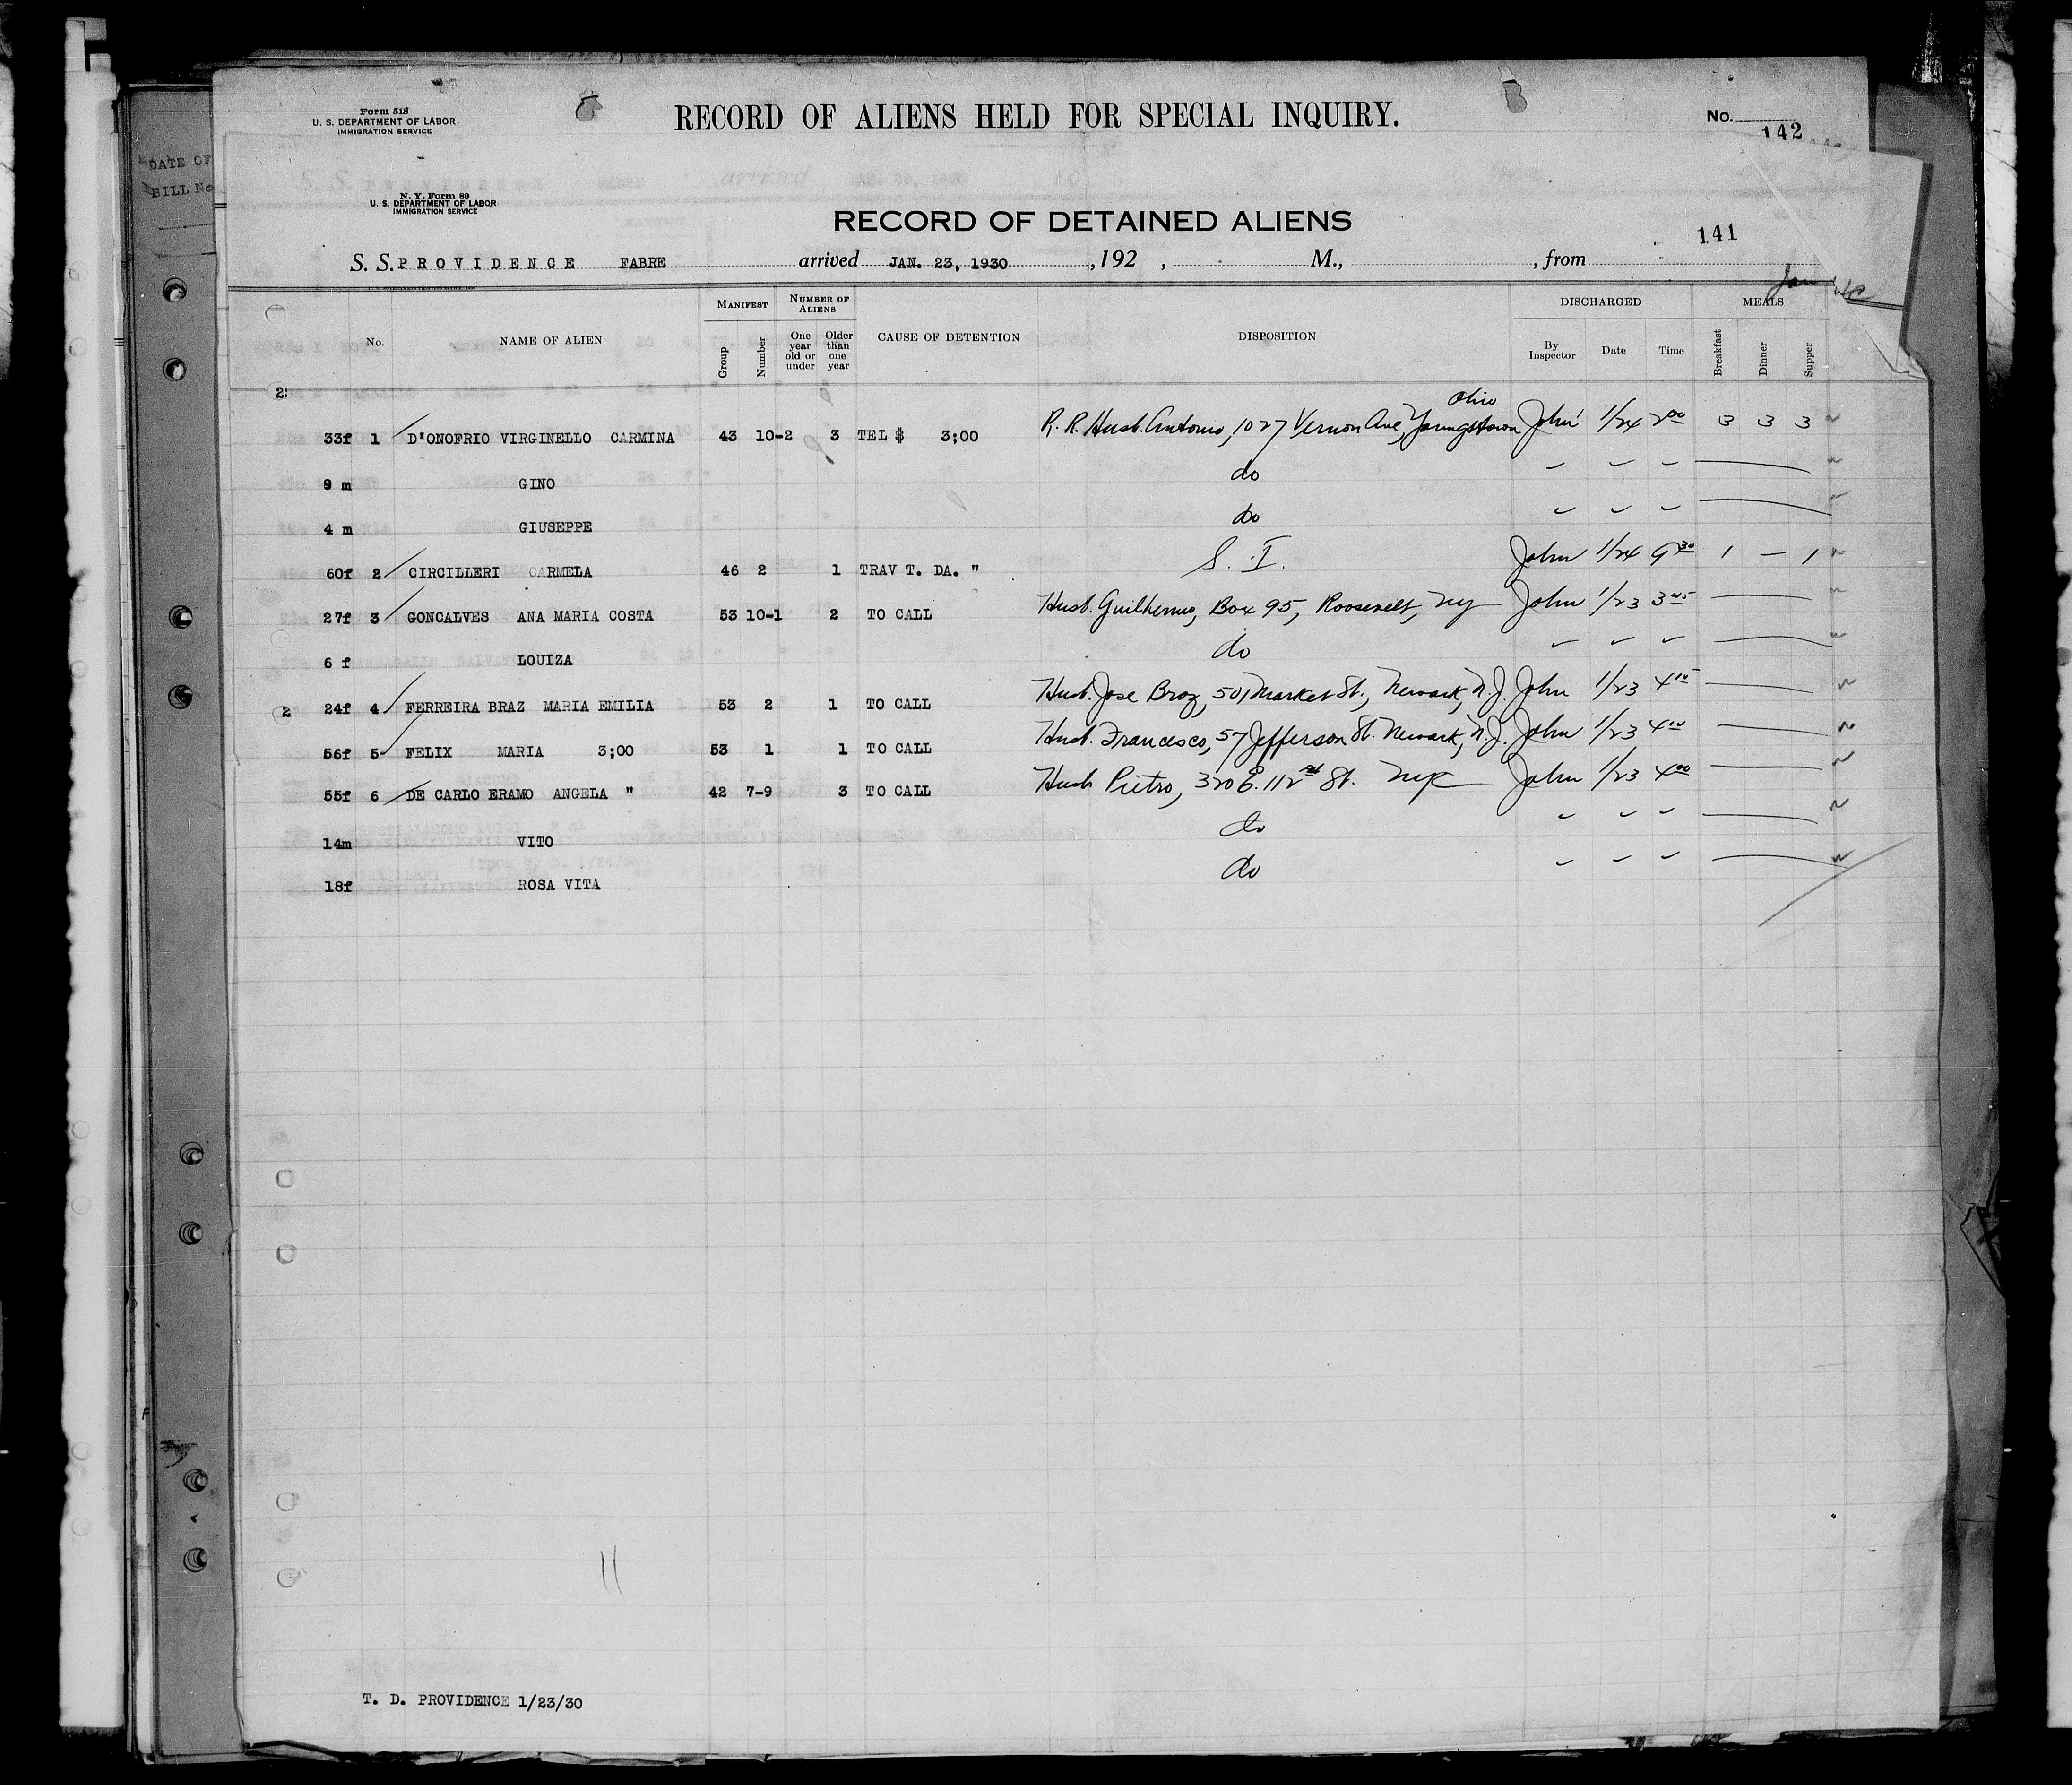 Form 518
U. S. DEPARTMENT OF LABOR
IMMIGRATION SERVICE
RECORD OF ALIENS HELD FOR SPECIAL INQUIRY.
No.
142
DATE OF
BILL No
N. Y. Form 89
U. S. DEPARTMENT OF LABOR
IMMIGRATION SERVICE
RECORD OF DETAINED ALIENS
141
S. S. PROVIDENCE FABRE arrived JAN. 23, 1930 , 192 , M., , from
No. NAME OF ALIEN MANIFEST Group Number NUMBER OF ALIENS One year old or under Older than one year CAUSE OF DETENTION DISPOSITION DISCHARGED By Inspector Date Time MEALS Breakfast Dinner Supper
Ohio
33f 1 D'ONOFRIO VIRGINELLO CARMINA 43 10-2 3 TEL $ 3;00 R. R. Husb. Antonio, 1027 Vernon Ave, Youngstown John 1/24 2 00 3 3 3
9 m GINO do
4 m GIUSEPPE do
60f 2 CIRCILLERI CARMELA 46 2 1 TRAV T. DA. " S. I. John 1/24 9 30 1 — 1
27f 3 GONCALVES ANA MARIA COSTA 53 10-1 2 TO CALL Husb. Guilhermo, Box 95, Roosevelt, NY John 1/23 3 45
6 f LOUIZA do
2 24f 4 FERREIRA BRAZ MARIA EMILIA 53 2 1 TO CALL Husb. Jose Braz, 501 Market St., Newark, N.J. John 1/23 4 10
56f 5 FELIX MARIA 3;00 53 1 1 TO CALL Husb. Francisco, 57 Jefferson St. Newark, N.J. John 1/23 4 10
55f 6 DE CARLO ERAMO ANGELA " 42 7-9 3 TO CALL Husb Pietro, 320 E. 112 St. NYC John 1/23 4 00
14m VITO do
18f ROSA VITA do
11
T. D. PROVIDENCE 1/23/30